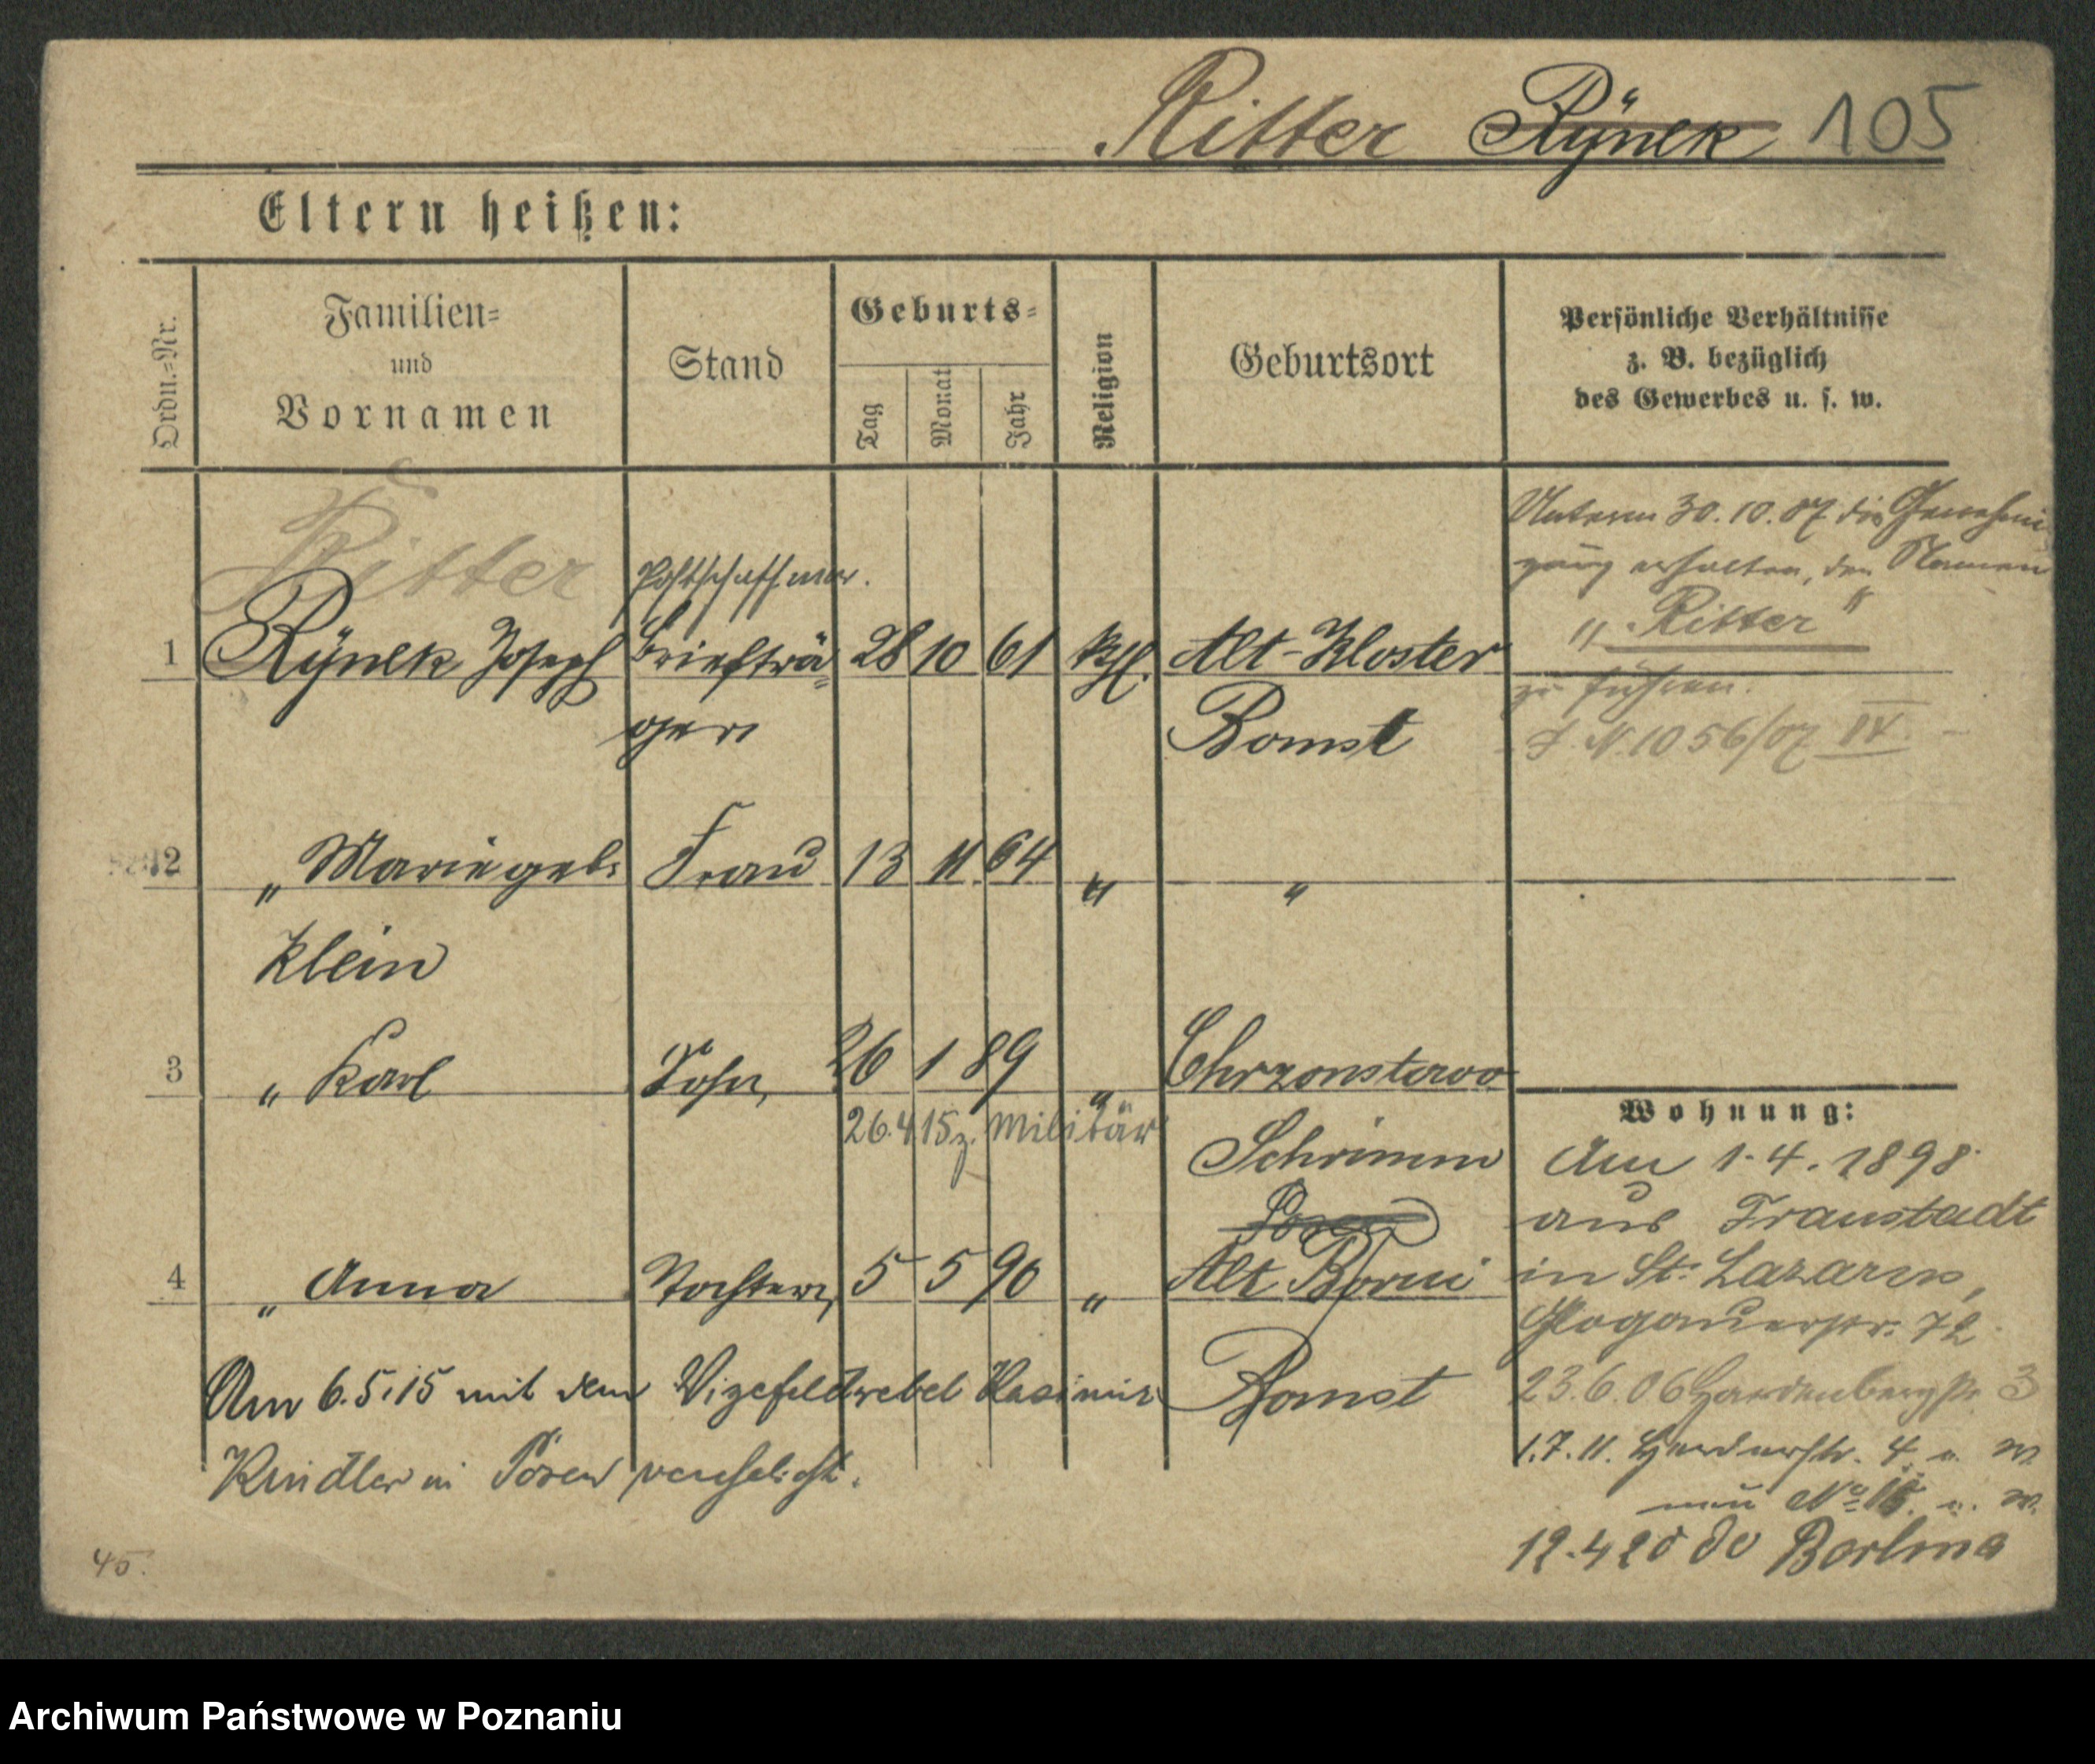 Ritter Rÿnek 105
Eltern heißen:
Ordn.=Nr.
Familien=
und
Vornamen
Stand
Geburts=
Tag
Monat
Jahr
Religion
Geburtsort
Persönliche Verhältnisse
z. B. bezüglich
des Gewerbes u. s. w.
Ritter
Postschaffner.
1 Rÿnek Joseph Briefträ= 28 10 61 kth. Alt-Kloster
ger Bomst
Unterm 30.10.07 die Genehmi
gung erhalten, den Namen
"Ritter"
zu führen.
J. N. 1056/07 IV.
2 " Marie geb. Frau 13 11 64 " "
Klein
3 " Karl Sohn, 26 1 89 " Chrzonstowo
26.4.15 z. Militär Schrimm
Posen
4 " Anna Tochter, 5 5 90 " Alt Borui
Bomst
Am 6.5.15 mit dem Vizefeldwebel Kasimir
Kindler in Posen verehelicht.
Wohnung:
Am 1.4.1898
aus Fraustadt
in St. Lazarus,
Glogauerstr. 72
23.6.06 Hardenbergstr. 3
1.7.11. Herderstr. 4 u. w.
neu No 15. u. w.
12.4 20 do Berlina
45.
Archiwum Państwowe w Poznaniu